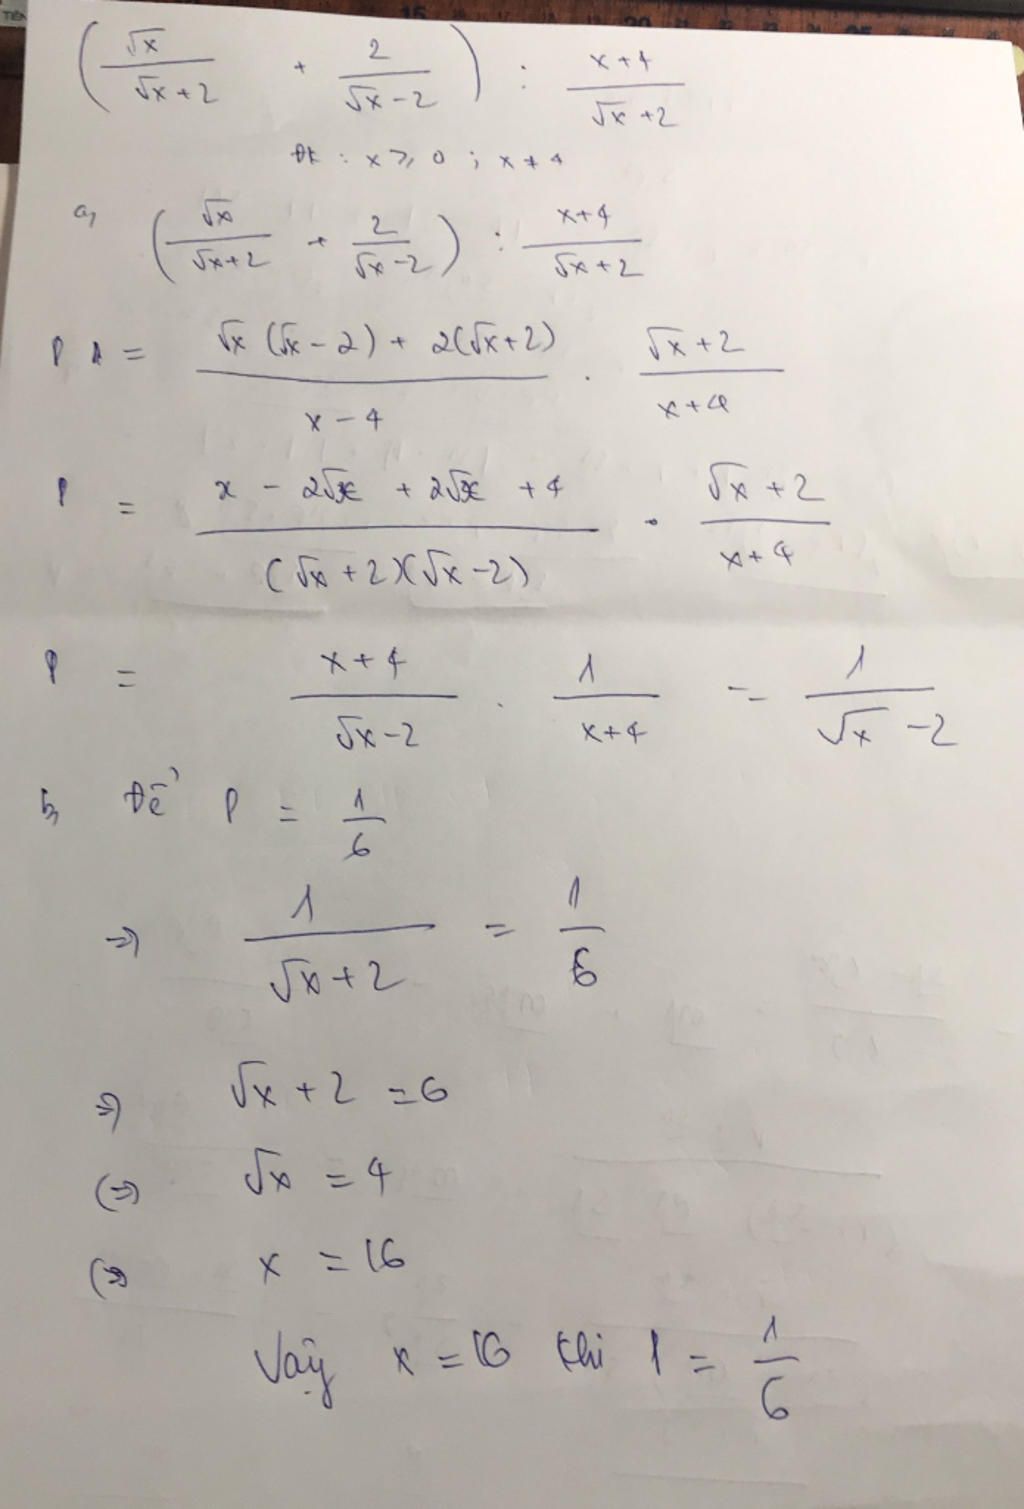 (√x/(√x+2) + 2/(√x-2)) : (x+4)/(√x+2)
ĐK : x ≥ 0 ; x ≠ 4
a, (√x/(√x+2) + 2/(√x-2)) : (x+4)/(√x+2)
P = (√x(√x-2) + 2(√x+2))/(x-4) . (√x+2)/(x+4)
P = (x - 2√x + 2√x + 4)/((√x+2)(√x-2)) . (√x+2)/(x+4)
P = (x+4)/(√x-2) . 1/(x+4) = 1/(√x-2)
b, Để P = 1/6
=> 1/(√x+2) = 1/6
=> √x+2 = 6
(=> √x = 4
(=> x = 16
Vậy x = 16 thì P = 1/6